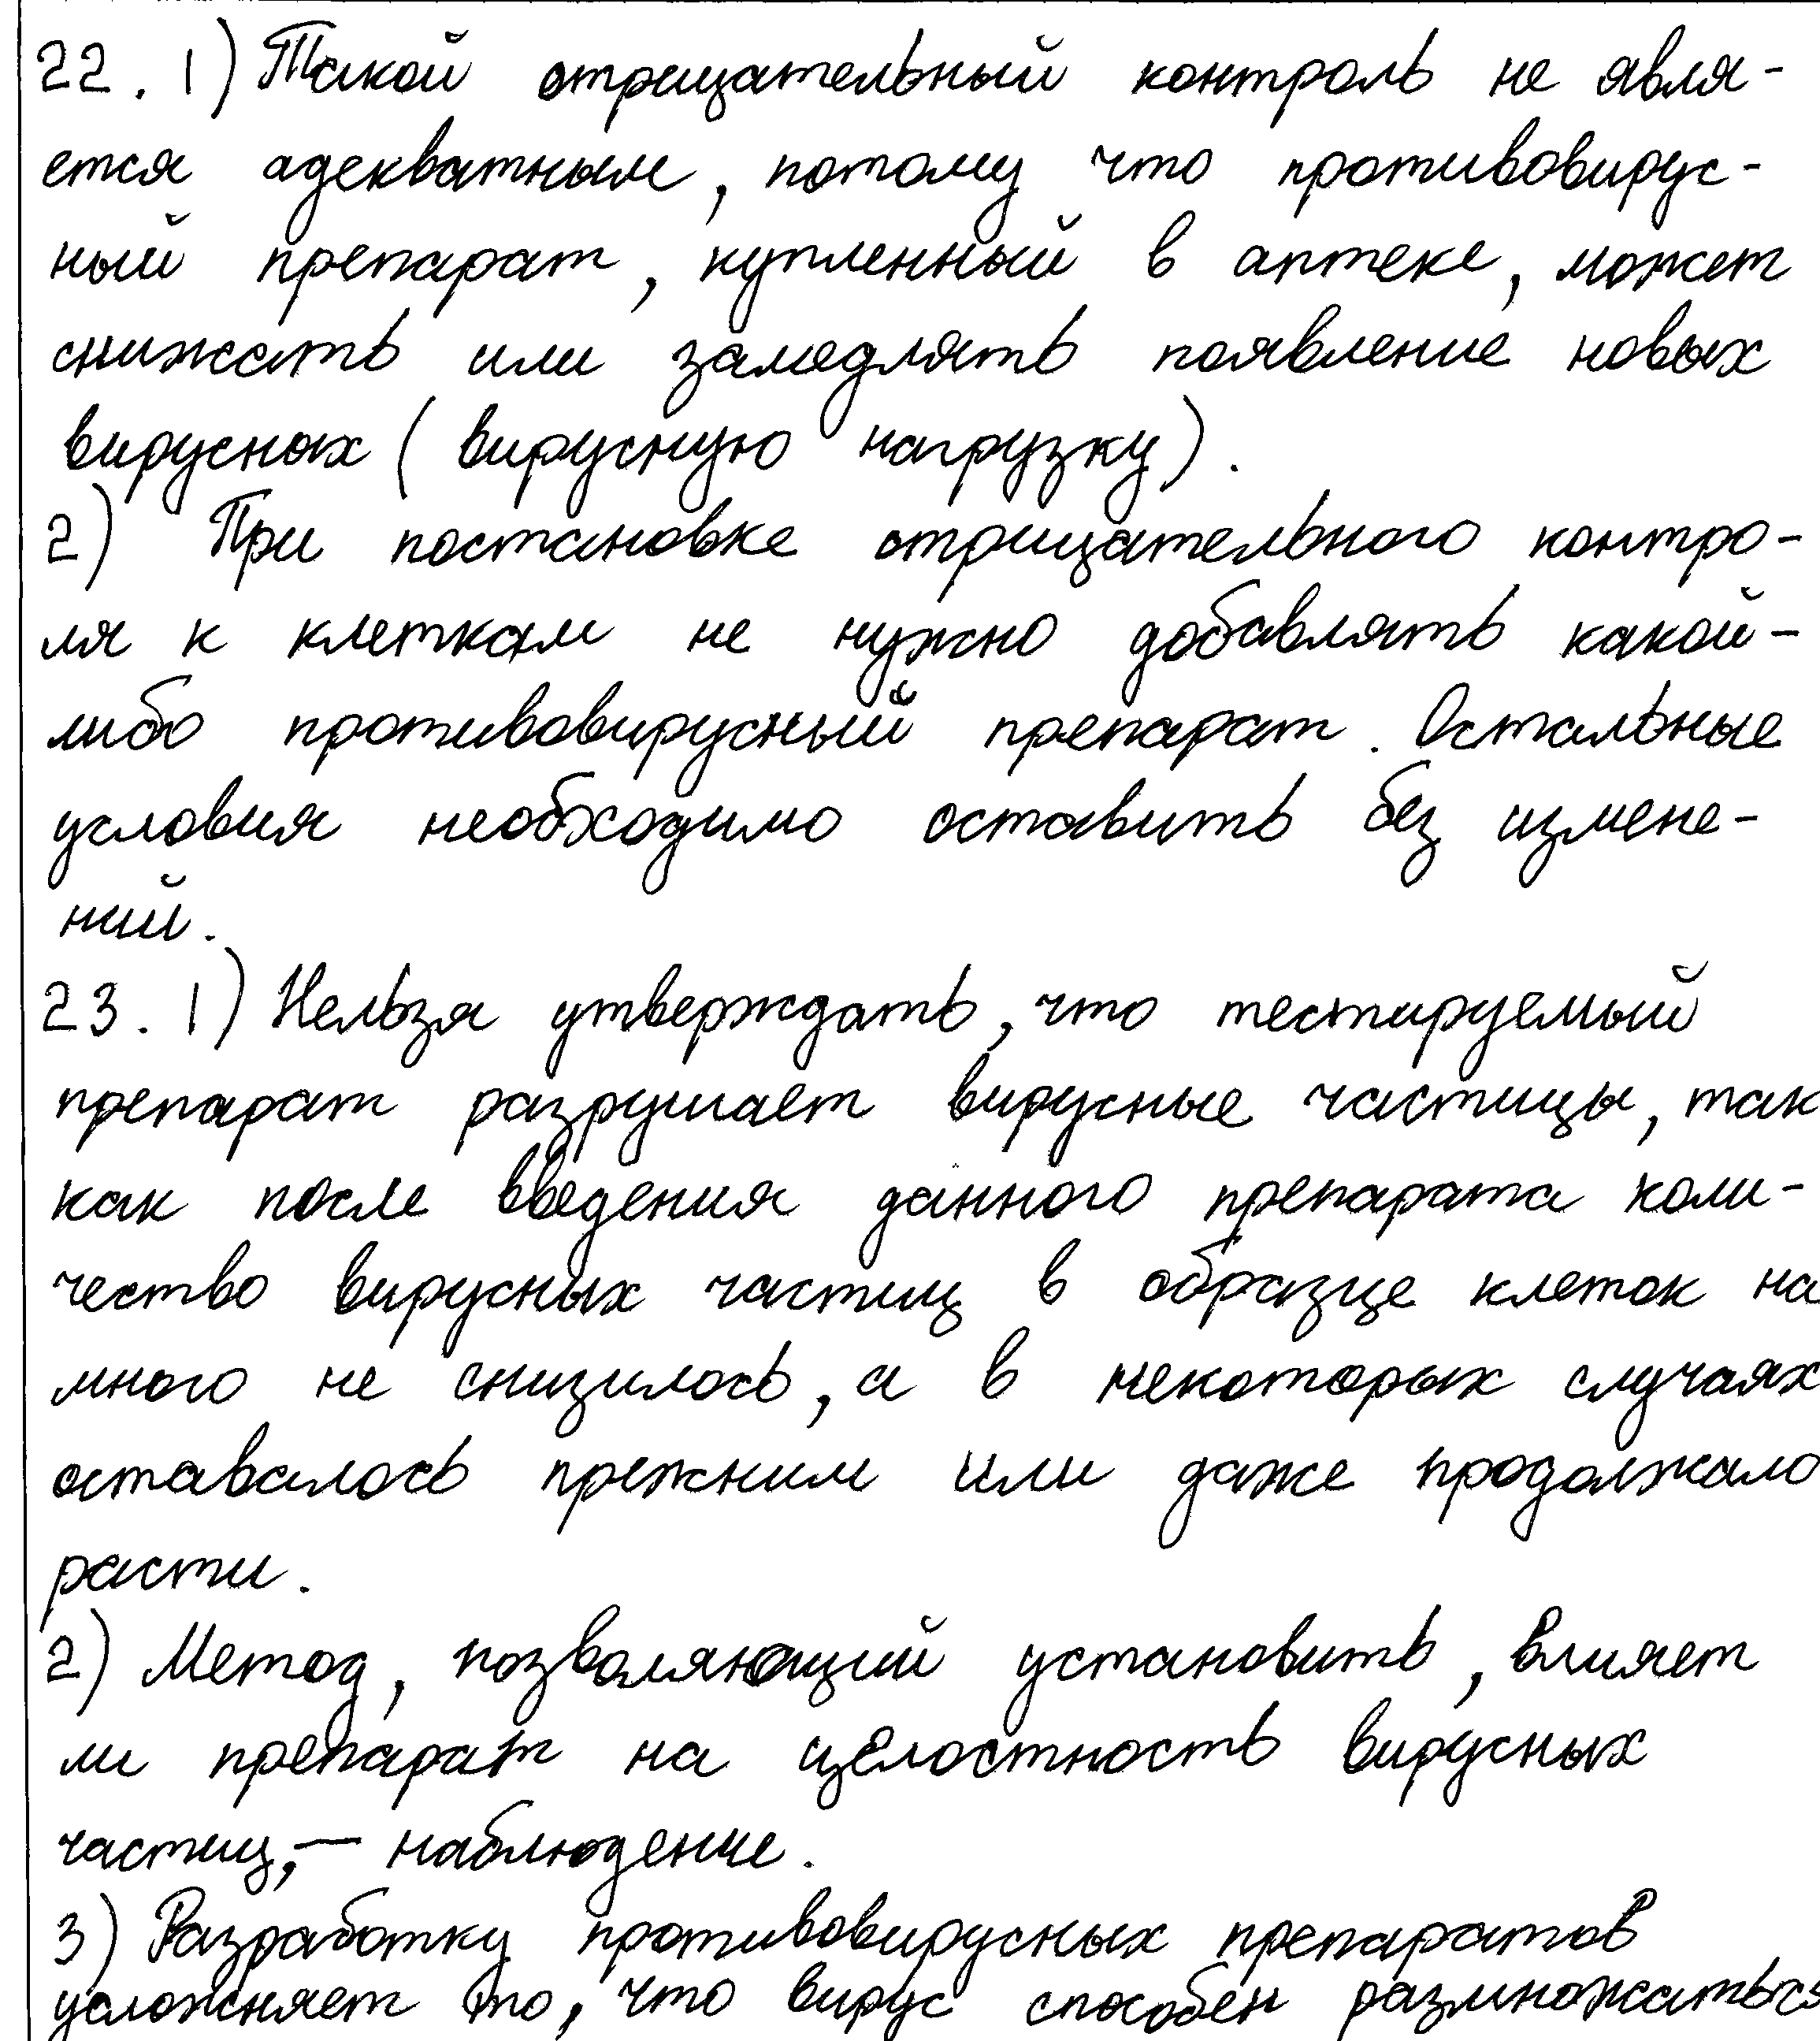 22. 1) Такой отрицательный контроль не явля-
ется адекватным, потому что противовирус-
ный препарат, купленный в аптеке, может
снижать или замедлять появление новых
вирусных (вирусную нагрузку).
2) При постановке отрицательного контро-
ля к клеткам не нужно добавлять какой-
либо противовирусный препарат. Остальные
условия необходимо оставить без измене-
ний.
23. 1) Нельзя утверждать, что тестируемый
препарат разрушает вирусные частицы, так
как после введения данного препарата коли-
чество вирусных частиц в образце клеток на
много не снизилось, а в некоторых случаях
оставалось прежним или даже продолжало
расти.
2) Метод, позволяющий установить, влияет
ли препарат на целостность вирусных
частиц, — наблюдение.
3) Разработку противовирусных препаратов
усложняет то, что вирус способен размножаться